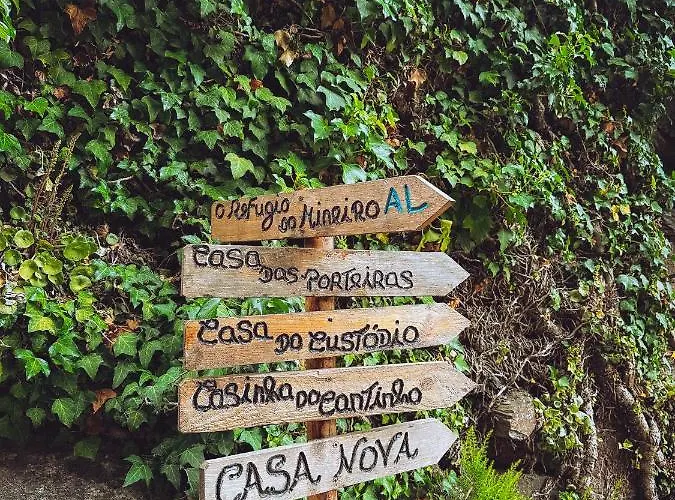 O Refugio do Mineiro AL
Casa das Porteiras
Casa do Custódio
Casinha do Cantinho
CASA NOVA